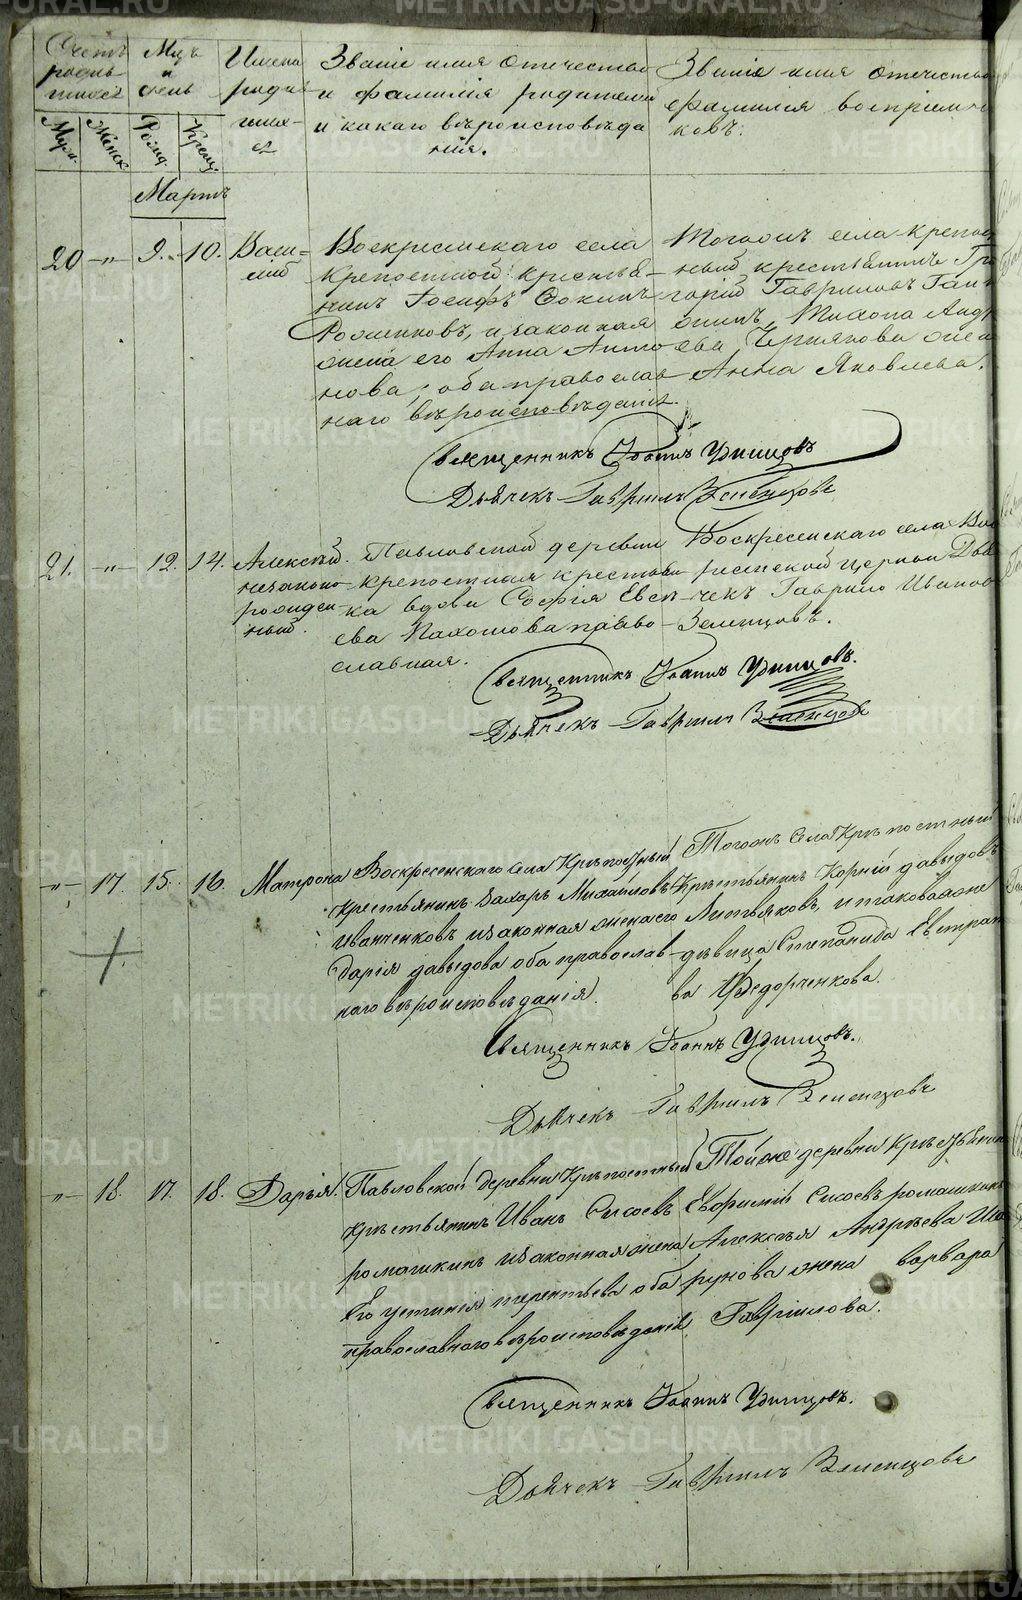 METRIKI.GASO-URAL.RU
Счетъ родившихся
Мцъ и день
Имена родившихся
Званіе имя отечество
и фамилія родителей
и какаго вѣроисповѣда
нія.
Званіе имя отечество
фамилія воспріемни
ковъ.
Муж.
Женск
Рожд.
Крещ.
Мартъ
20 -"- 9. 10.
Васи=
лій
Воскресенскаго села
Крепостной крестья-
нинъ Іосифъ
и законная
жена его Анна Антоо-
нова, оба православ
наго вѣроисповѣданія.
Тогожъ села крепос
ный крестьянинъ Гри
горій Гавриловъ
жена
Анна Яковлева.
Священникъ Іоаннъ Удинцовъ
Дьячекъ Гавріилъ Земенцовъ
21. -"- 12. 14.
Алексѣй
незаконо
рожден
ный.
Павловской деревни
крепостная крестьян
ка вдова Софія Евсѣ-
ева Пахомова право-
славная.
Воскресенскаго села Вос
ресенской церкви Дья
чекъ Гаврило Иванов
Земенцовъ.
Священникъ Іоаннъ Удинцовъ.
Дьячекъ Гавріилъ Земенцовъ
-"- 17. 15. 16.
Матрона
Воскресенскаго села Крѣпостный
Крестьянинъ Захаръ Михайловъ
Иванченковъ изаконная жена его
Дарія давыдова оба православ
наго вѣроисповѣданія.
Тогожъ Села Крѣпостный
Крѣстьянинъ Корній давыдовъ
Литвяковъ, и таковая же
дѣвица Степанида Евстрат
ва Федорченкова.
Священникъ Іоаннъ Удинцовъ.
Дьячекъ Гавріилъ Земенцовъ
-"- 18. 17. 18.
Дарья.
Павловской деревни Крѣпостный
Крѣстьянинъ Иванъ Сисоевъ
ромашкинъ изаконная жена
Его устинія терентьева оба
православнаго вѣроисповѣданія
Тойже деревни Крѣстьянинъ
Ефримій Сисоевъ ромашкинъ
Алексѣя Андрѣева
жена варвара
Гавріилова.
Священникъ Іоаннъ Удинцовъ.
Дьячекъ Гавріилъ Земенцовъ